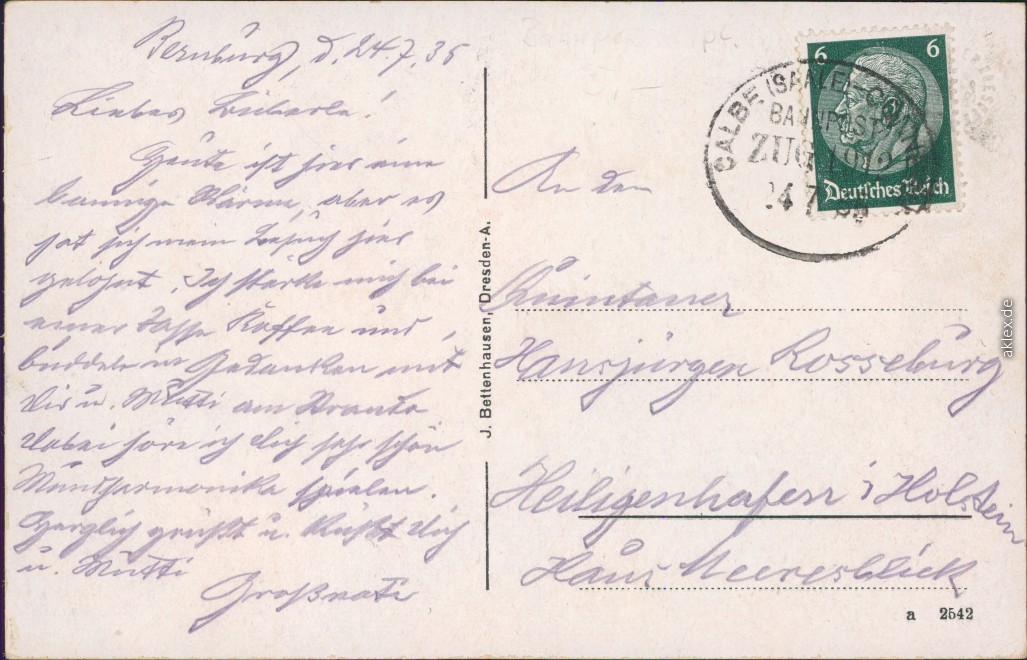 Bernburg, d. 24.7.35
Liebes Büberle!
Heute ist hier eine
bannige Wärme, aber es
hat sich mein Besuch hier
gelohnt. Ich stärke mich bei
einer Tasse Kaffee und
buddele in Gedanken mit
Dir u. Mutti am Strande
Dabei höre ich Dich sehr schön
Mundharmonika spielen.
Herzlich grüßt u. küßt Dich
u. Mutti
Großvati
J. Bettenhausen, Dresden-A.
6 6
Deutsches Reich
CALBE (SAALE)-
BAHNPOST
ZUG
An den
Quintaner
Hansjürgen Rosseburg
Heiligenhafen i/Holstein
Haus Meeresblick
a 2542
aklex.de